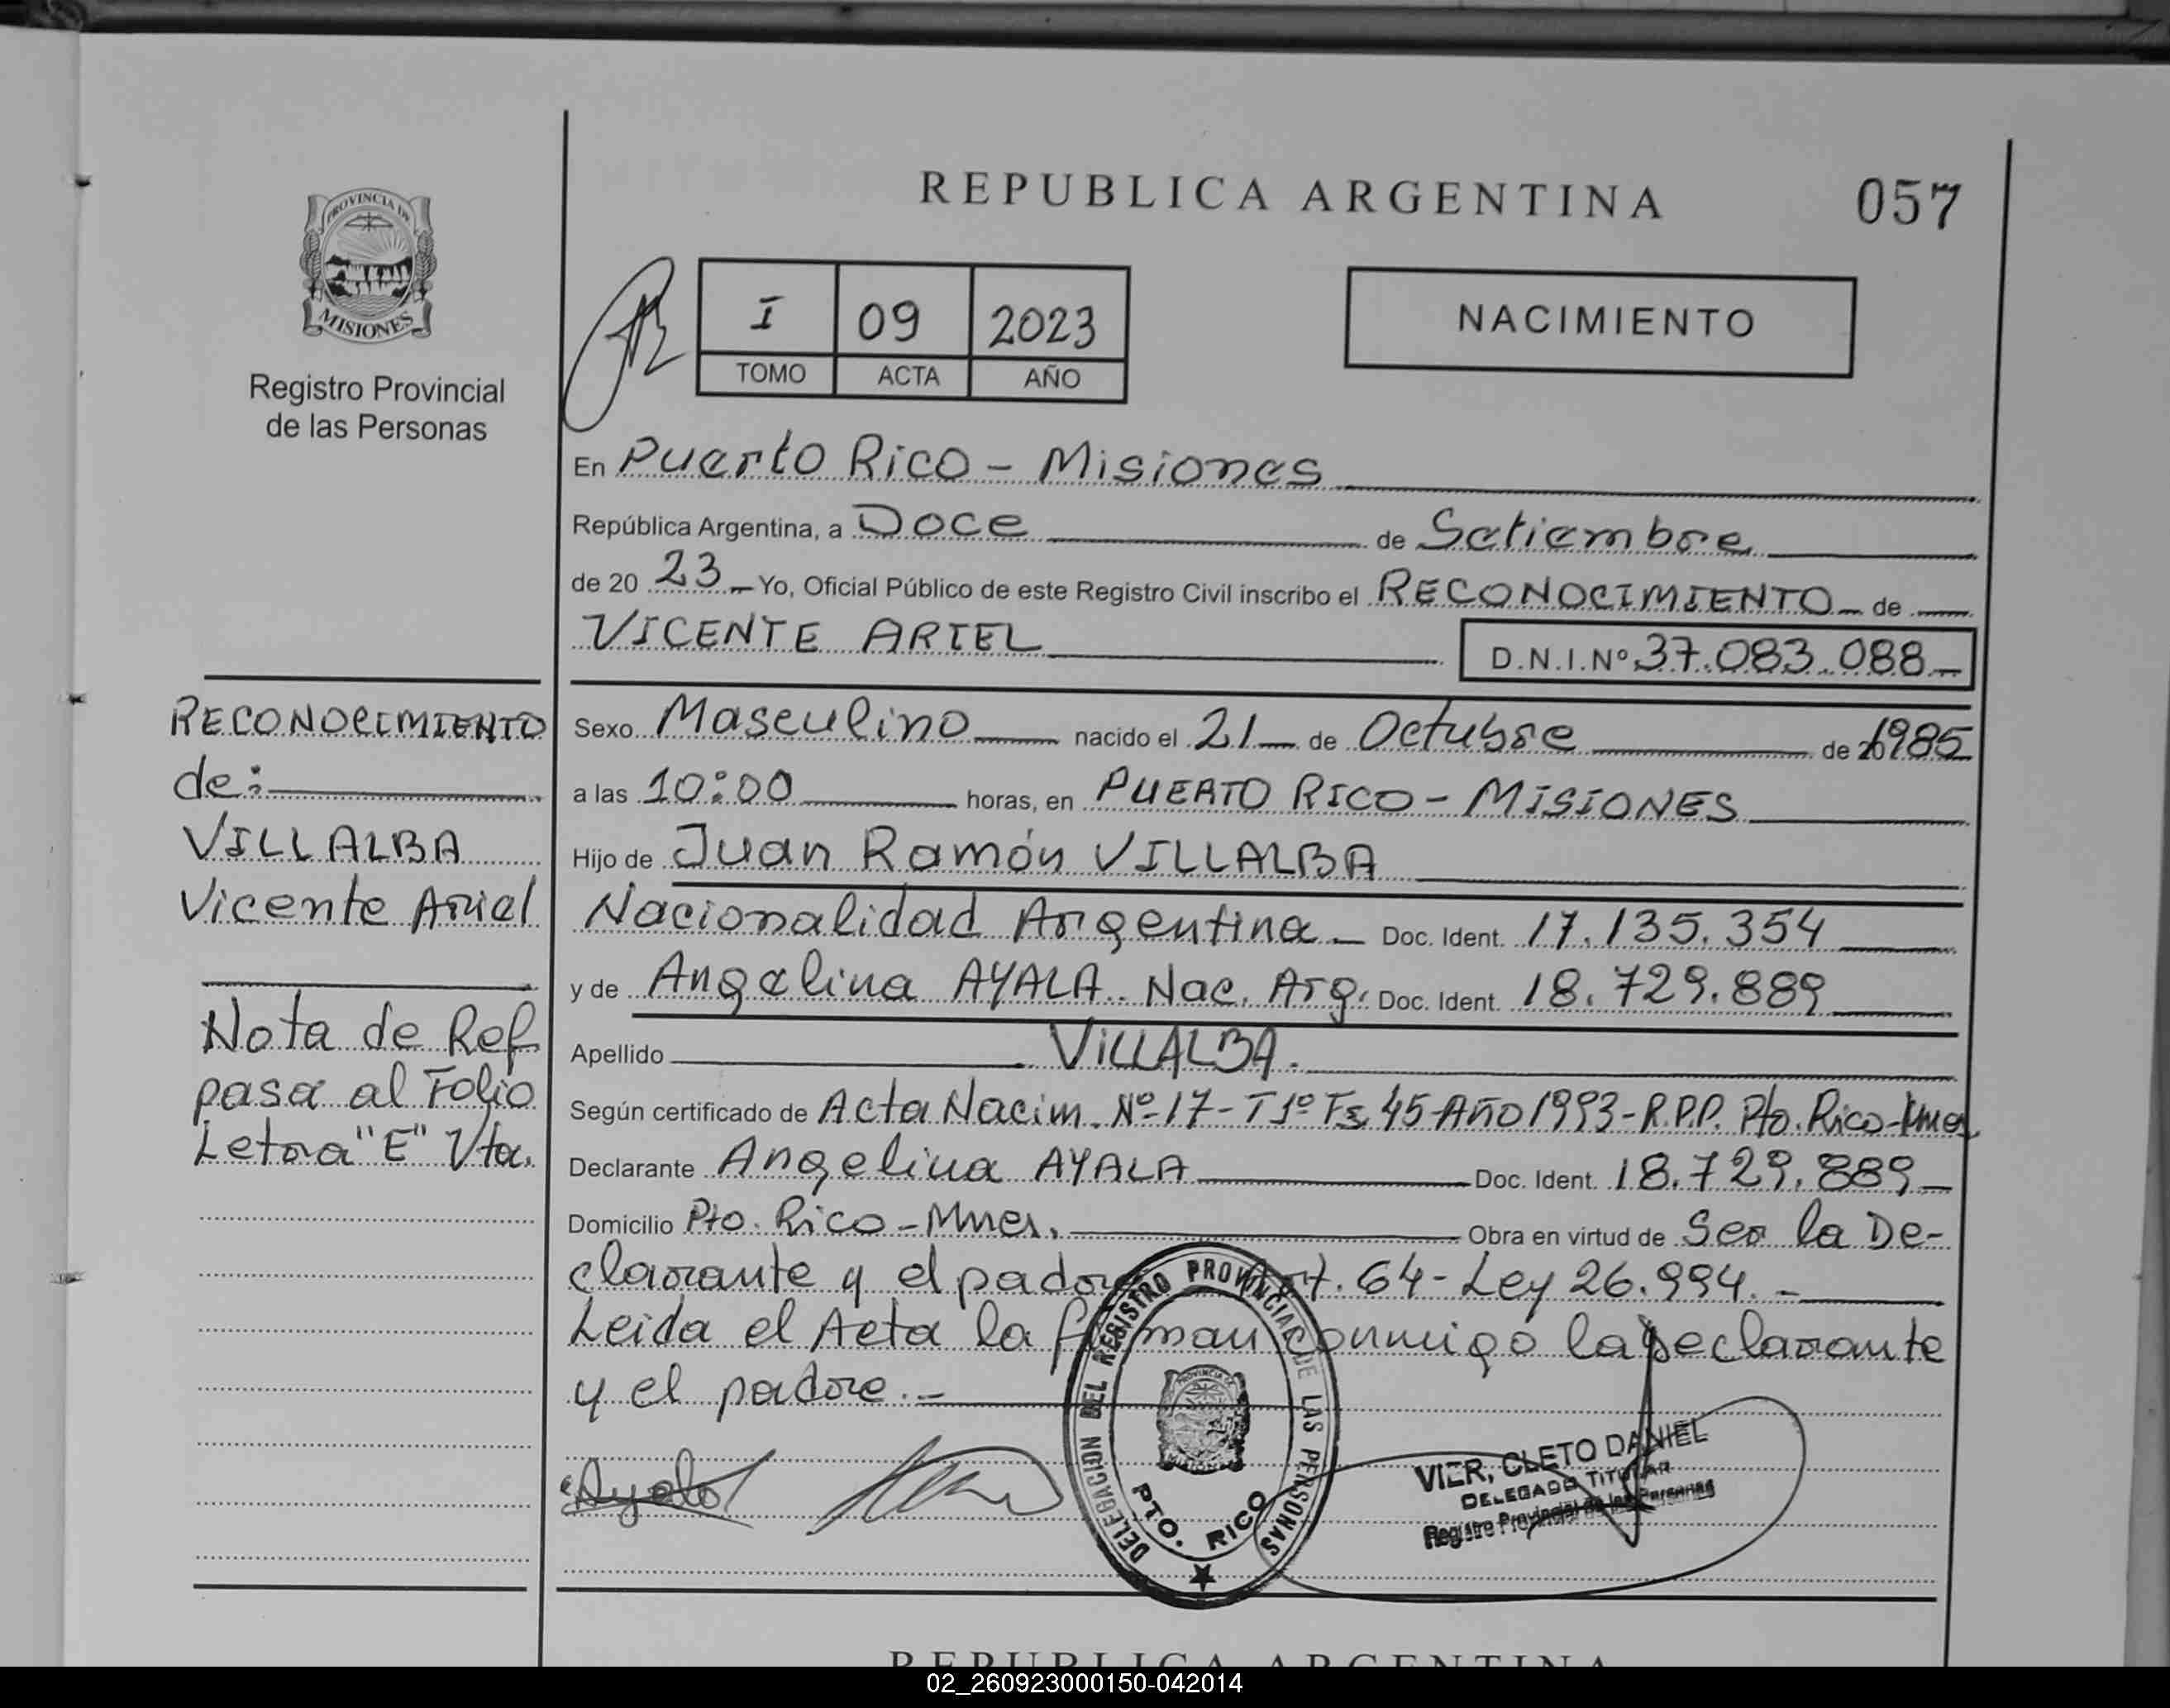 REPUBLICA ARGENTINA
057
PROVINCIA DE
MISIONES
Registro Provincial
de las Personas
I 09 2023
TOMO ACTA AÑO
NACIMIENTO
En Puerto Rico - Misiones
República Argentina, a Doce de Setiembre
de 20 23 - Yo, Oficial Público de este Registro Civil inscribo el RECONOCIMIENTO de
VICENTE ARIEL D.N.I.Nº 37.083.088
RECONOCIMIENTO
de:
VILLALBA
Vicente Ariel
Nota de Ref
pasa al Folio
Letra "E" Vta.
Sexo Masculino nacido el 21 de Octubre de 1985
a las 10:00 horas, en PUERTO RICO - MISIONES
Hijo de Juan Ramón VILLALBA
Nacionalidad Argentina - Doc. Ident. 17.135.354
y de Angelina AYALA. Nac. Arg. Doc. Ident. 18.729.889
Apellido VILLALBA.
Según certificado de Acta Nacim. Nº 17 - T 1º Fs 45 Año 1993 - R.P.P. Pto. Rico - Mnes
Declarante Angelina AYALA Doc. Ident. 18.729.889
Domicilio Pto. Rico - Mnes. Obra en virtud de Ser la De-
clarante y el padre Art. 64 - Ley 26.994. -
Leida el Acta la firman conmigo la Declarante
y el padre. -
DELEGACION DEL REGISTRO PROVINCIAL DE LAS PERSONAS
PTO. RICO
Ayala
VIER, CLETO DANIEL
DELEGADO TITULAR
Registro Provincial de las Personas
REPUBLICA ARGENTINA
02_260923000150-042014